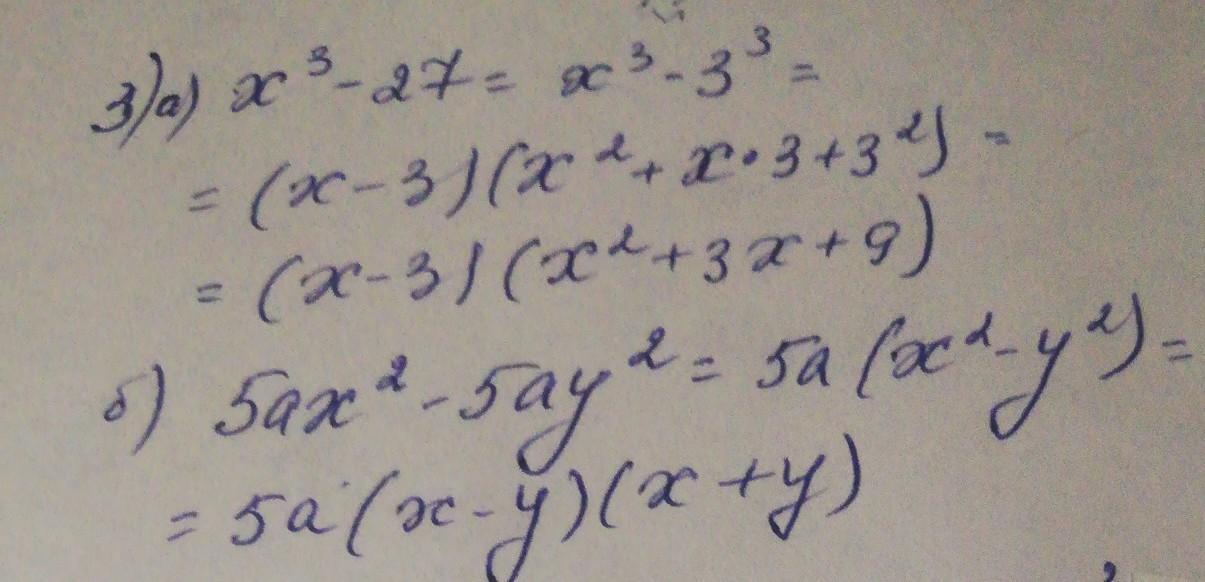 3) а) x³ - 27 = x³ - 3³ =
= (x - 3)(x² + x · 3 + 3²) =
= (x - 3)(x² + 3x + 9)
б) 5ax² - 5ay² = 5a(x² - y²) =
= 5a(x - y)(x + y)